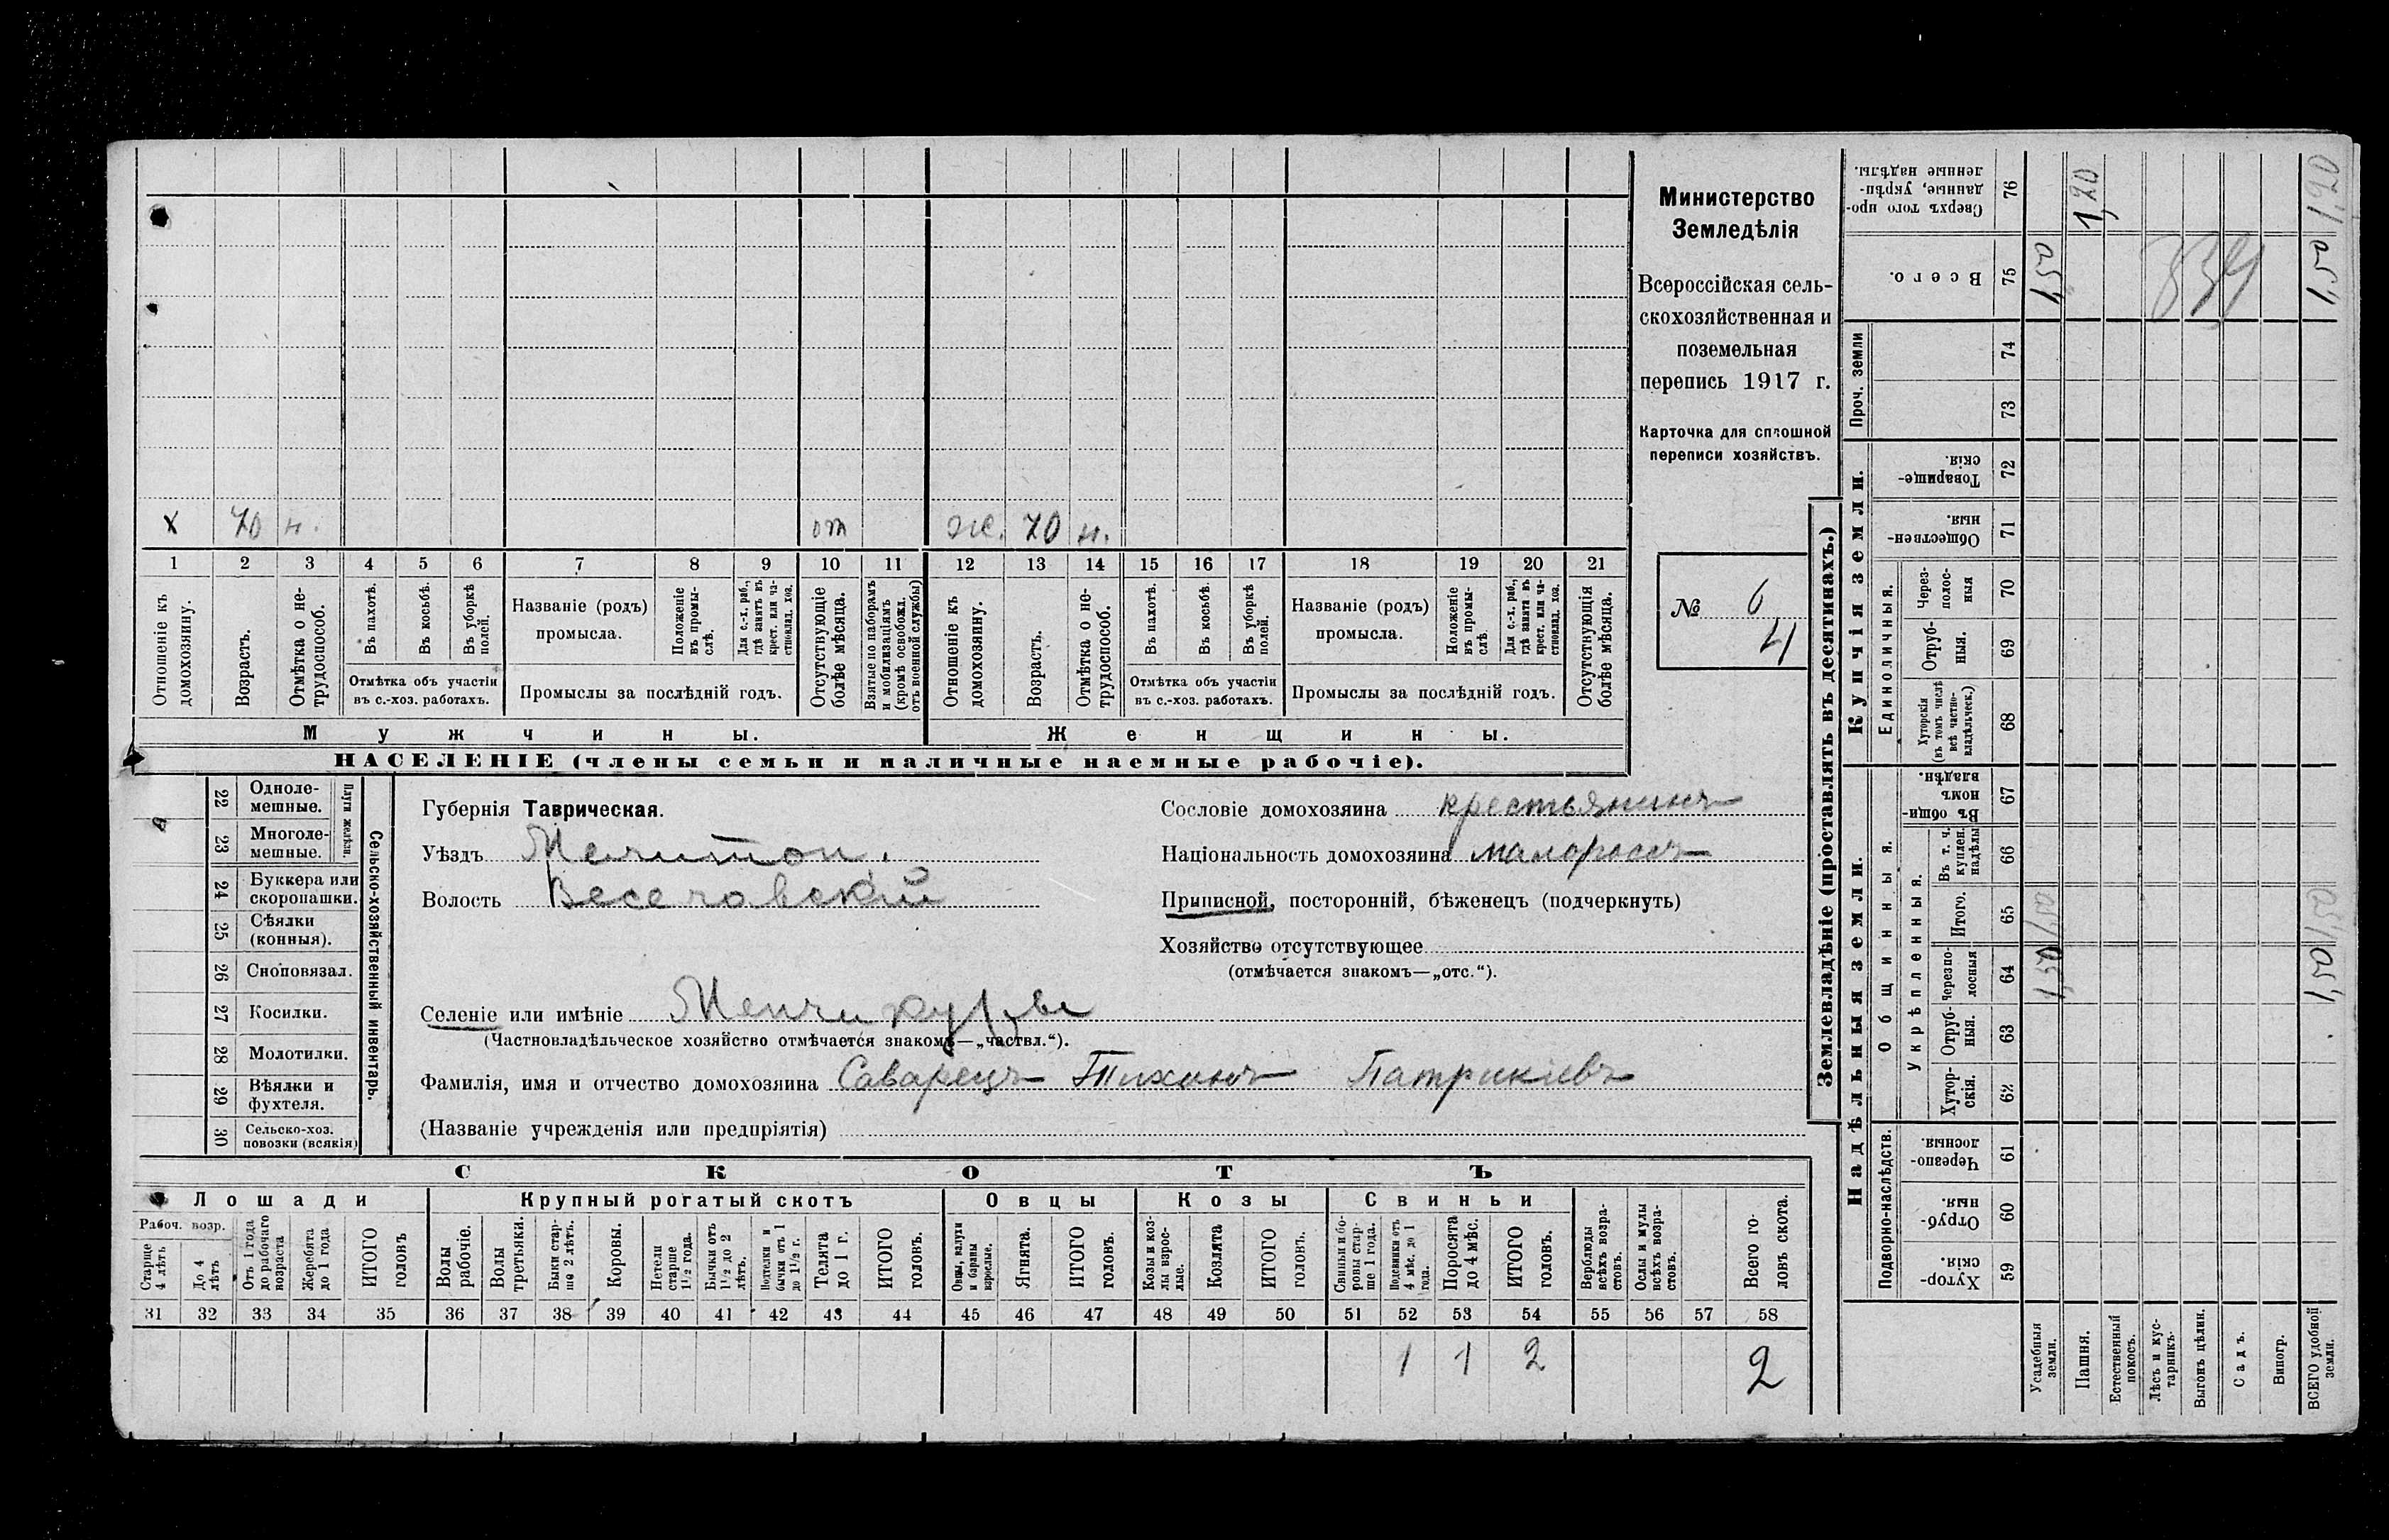 х 70 н. от ж. 70 н.
1 2 3 4 5 6 7 8 9 10 11 12 13 14 15 16 17 18 19 20 21
Отношеніе къ домохозяину.
Возрастъ.
Отмѣтка о не-
трудоспособ.
Въ пахотѣ.
Въ косьбѣ.
Въ уборкѣ полей.
Отмѣтка объ участіи
въ с.-хоз. работахъ.
Названіе (родъ)
промысла.
Положеніе въ промы-
слѣ.
Для с.-х. раб.,
гдѣ занятъ въ
крест. или ча-
стновлад. хоз.
Промыслы за послѣдній годъ.
Отсутствующіе
болѣе мѣсяца.
Взятые по наборамъ
и мобилизаціямъ
(кромѣ освобожд.
отъ военной службы)
Отношеніе къ
домохозяину.
Возрастъ.
Отмѣтка о не-
трудоспособ.
Въ пахотѣ.
Въ косьбѣ.
Въ уборкѣ
полей.
Отмѣтка объ участіи
въ с.-хоз. работахъ.
Названіе (родъ)
промысла.
Положеніе
въ промы-
слѣ.
Для с.-х. раб.,
гдѣ занята въ
крест. или ча-
стновлад. хоз.
Промыслы за послѣдній годъ.
Отсутствующія
болѣе мѣсяца.
Мужчины.
Женщины.
НАСЕЛЕНІЕ (члены семьи и наличные наемные рабочіе).
Министерство
Земледѣлія
Всероссійская сель-
скохозяйственная и
поземельная
перепись 1917 г.
Карточка для сплошной
переписи хозяйствъ.
№ 6
4
22 Одноле-
мешные.
23 Многоле-
мешные.
Плуги желѣзн.
24 Буккера или
скоропашки.
25 Сѣялки
(конныя).
26 Сноповязал.
27 Косилки.
28 Молотилки.
29 Вѣялки и
фухтеля.
30 Сельско-хоз.
повозки (всякія)
Сельско-хозяйственный инвентарь.
Губернія Таврическая.
Уѣздъ Мелитоп.
Волость Веселовский
Селеніе или имѣніе Менчикуры
(Частновладѣльческое хозяйство отмѣчается знакомъ—„частвл.“).
Фамилія, имя и отчество домохозяина Саварецъ Тихонъ Патрикиевъ
(Названіе учрежденія или предпріятія)
Сословіе домохозяина крестьянинъ
Національность домохозяина малороссъ
Приписной, посторонній, бѣженецъ (подчеркнуть)
Хозяйство отсутствующее
(отмѣчается знакомъ—„отс.“).
СКОТЪ
Лошади
Крупный рогатый скотъ
Овцы
Козы
Свиньи
Рабоч. возр.
Старше
4 лѣтъ
До 4
лѣтъ
Отъ 1 года
до рабочаго
возраста
Жеребята
до 1 года
ИТОГО
головъ
Волы
рабочіе.
Волы
третьяки.
Быки стар-
ше 2 лѣтъ.
Коровы.
Нетели
старше
1½ года.
Бычки отъ
1½ до 2
лѣтъ.
Подтелки и
бычки отъ 1
до 1½ г.
Телята
до 1 г.
ИТОГО
головъ.
Овцы, валухи
и бараны
взрослые.
Ягнята.
ИТОГО
головъ.
Козы и коз-
лы взрос-
лые.
Козлята
ИТОГО
головъ.
Свиньи и бо-
ровы стар-
ше 1 года.
Подсвинки отъ
4 мѣс. до 1
года.
Поросята
до 4 мѣс.
ИТОГО
головъ.
Верблюды
всѣхъ возра-
стовъ.
Ослы и мулы
всѣхъ возра-
стовъ.
Всего го-
ловъ скота.
31 32 33 34 35 36 37 38 39 40 41 42 43 44 45 46 47 48 49 50 51 52 53 54 55 56 57 58
1 1 2 2
Землевладѣніе (проставлять въ десятинахъ.)
Купчія земли.
Надѣльныя земли.
Проч. земли
Единоличныя.
Общинныя.
Укрѣпленныя.
Подворно-наслѣдств.
Сверхъ того про-
данные, укрѣп-
ленные надѣлы.
76
1,20
1,20
Всего.
75
834
74
73
Товарище-
скія.
72
Обществен-
ныя.
71
Через-
полос-
ныя
70
Отруб-
ныя.
69
Хуторскія
(въ томъ числѣ
всѣ частно-
владѣльческ.)
68
Въ общи-
номъ
владѣн.
67
Въ т. ч.
куплен.
надѣлы
66
Итого.
65
Черезпо-
лосныя
64
Отруб-
ныя.
63
Хутор-
скія.
62
Черезпо-
лосныя.
61
Отруб-
ныя.
60
Хутор-
скія.
59
Усадебныя
земли.
Пашня.
Естественный
покосъ.
Лѣсъ и кус-
тарникъ.
Выгонъ цѣлин.
Садъ.
Виногр.
ВСЕГО удобной
земли.